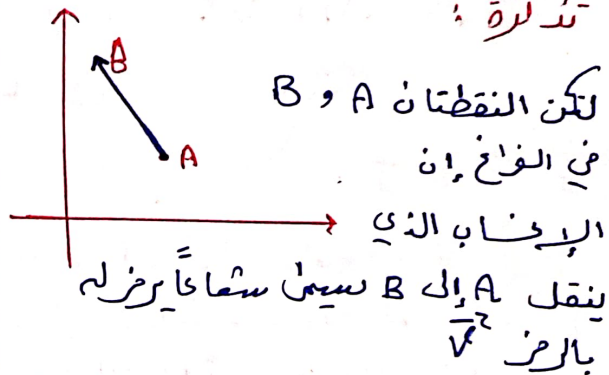 تذكرة :
B
A
لتكن النقطتان A و B
في الفراغ إن
الإنسحاب الذي
ينقل A إلى B يسمى شعاعاً يرمز له
بالرمز V⃗